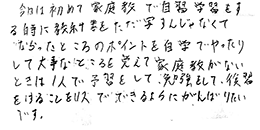 今日は初めて家庭教で自習学習をす
る時に教科書をただ写すんじゃなくて
なったところのポイントを自学でやったり
して大事なところを覚えて家庭教がない
ときは1人で予習をして、勉強をして、復習
をけることを1人でできるようにがんばりたい
です。